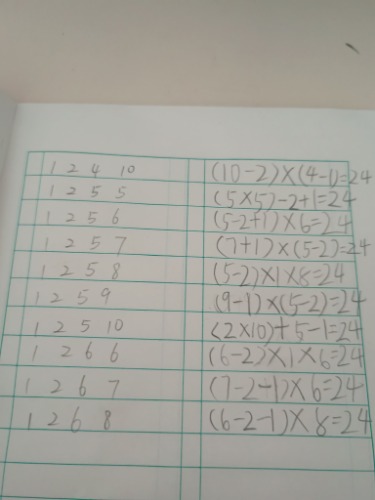 1 2 4 10 (10-2)×(4-1)=24
1 2 5 5 (5×5)-2+1=24
1 2 5 6 (5-2+1)×6=24
1 2 5 7 (7+1)×(5-2)=24
1 2 5 8 (5-2)×1×8=24
1 2 5 9 (9-1)×(5-2)=24
1 2 5 10 (2×10)+5-1=24
1 2 6 6 (6-2)×1×6=24
1 2 6 7 (7-2-1)×6=24
1 2 6 8 (6-2-1)×8=24